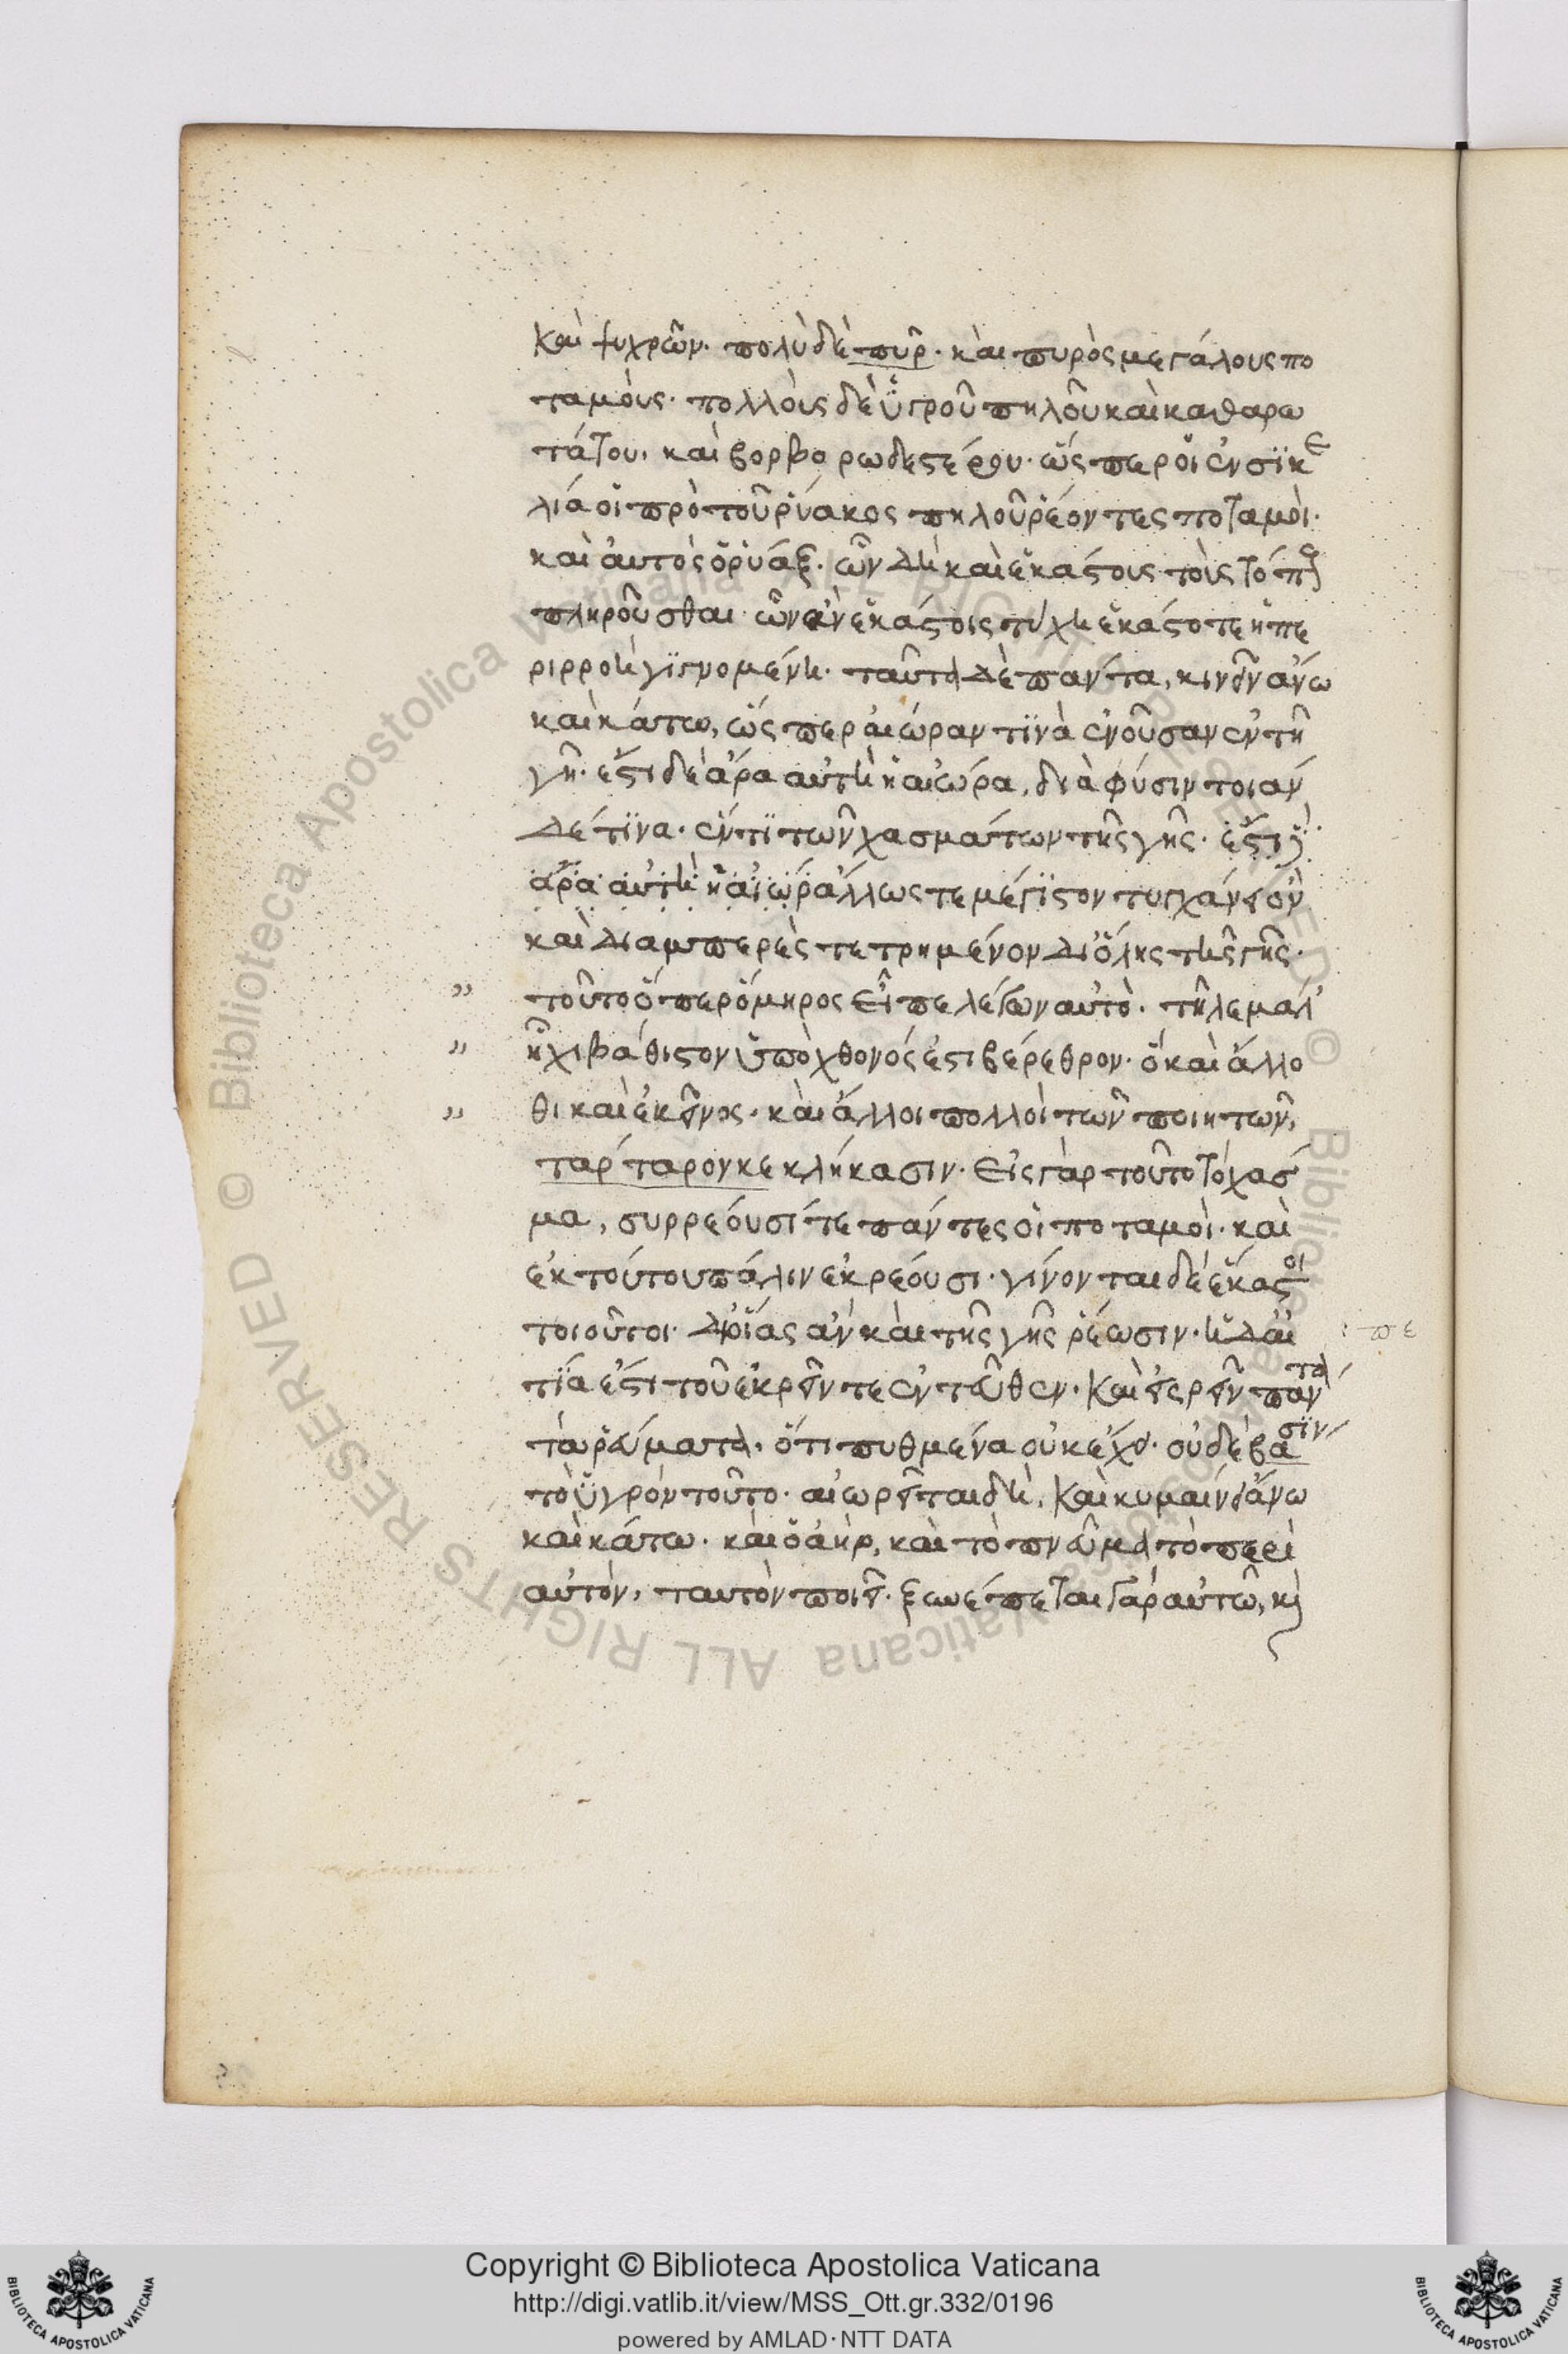 Καὶ ψυχρῶν· πολὺ δὲ πῦρ· καὶ πυρὸς μεγάλους πο
ταμούς· πολλοὺς δὲ ὑγροῦ πηλοῦ καὶ καθαρω
τάτου, καὶ βορβορωδεστέρου· ὥσπερ οἱ ἐν σϊκε
λία οἱ πρὸ τοῦ ῥύακος πηλοῦ ῥέοντες ποταμοί·
καὶ αὐτὸς ὁ ῥύαξ· ὧν δὴ καὶ ἑκάστους τοὺς τόπους
πληροῦσθαι· ὧν ἂν ἑκάστοις τύχη ἑκάστοτε ἡ πε
ριρροὴ γϊγνομένη· ταῦτα δὲ πάντα, κινεῖν ἄνω
καὶ κάτω, ὥσπερ αἰώραν τϊνὰ ἐνοῦσαν ἐν τῆ
γῆ· ἔστι δὲ ἄρα αὐτὴ ἡ αἰώρα, διὰ φύσιν τοιάν
δέ τϊνα· ἕν τϊ τῶν χασμάτων τῆς γῆς· ἔστι δὲ
ἄρα αὐτὴ ἡ αἰώρα ἄλλως τε μέγϊστον τυγχάνει ὂν
καὶ διαμπερὲς τετρημένον δι' ὅλης τῆς γῆς·
" τοῦτο ὅπερ ὅμηρος εἶπε λέγων αὐτό· τῆλε μάλ'
" ἧχι βάθιστον ὑπὸ χθονός ἐστι βέρεθρον· ὃ καὶ ἄλλο
" θι καὶ ἐκεῖνος· καὶ ἄλλοι πολλοὶ τῶν ποιητῶν,
τάρταρον κεκλήκασιν· Εἰς γὰρ τοῦτο τὸ χάσ
μα, συρρέουσί τε πάντες οἱ ποταμοί· καὶ
ἐκ τούτου πάλιν ἐκρέουσι· γίνονται δὲ ἕκαστοι
τοιοῦτοι· δι' οἵας ἂν καὶ τῆς γῆς ῥέωσιν· ἡ δὲ αἰ
τϊα ἐστι τοῦ ἐκρεῖν τε ἐντεῦθεν· Καὶ εἰσρεῖν πάντα
τὰ ῥεύματα· ὅτι πυθμένα οὐκ ἔχει· οὐδὲ βάσϊν
τὸ ὑγρὸν τοῦτο· αἰωρεῖται δὴ, Καὶ κυμαίνει ἄνω
καὶ κάτω· καὶ ὁ ἀὴρ, καὶ τὸ πνεῦμα τὸ περὶ
αὐτὸν, ταυτὸν ποιεῖ· ξυνέπεται γὰρ αὐτῶ, καὶ
Copyright © Biblioteca Apostolica Vaticana
http://digi.vatlib.it/view/MSS_Ott.gr.332/0196
powered by AMLAD·NTT DATA